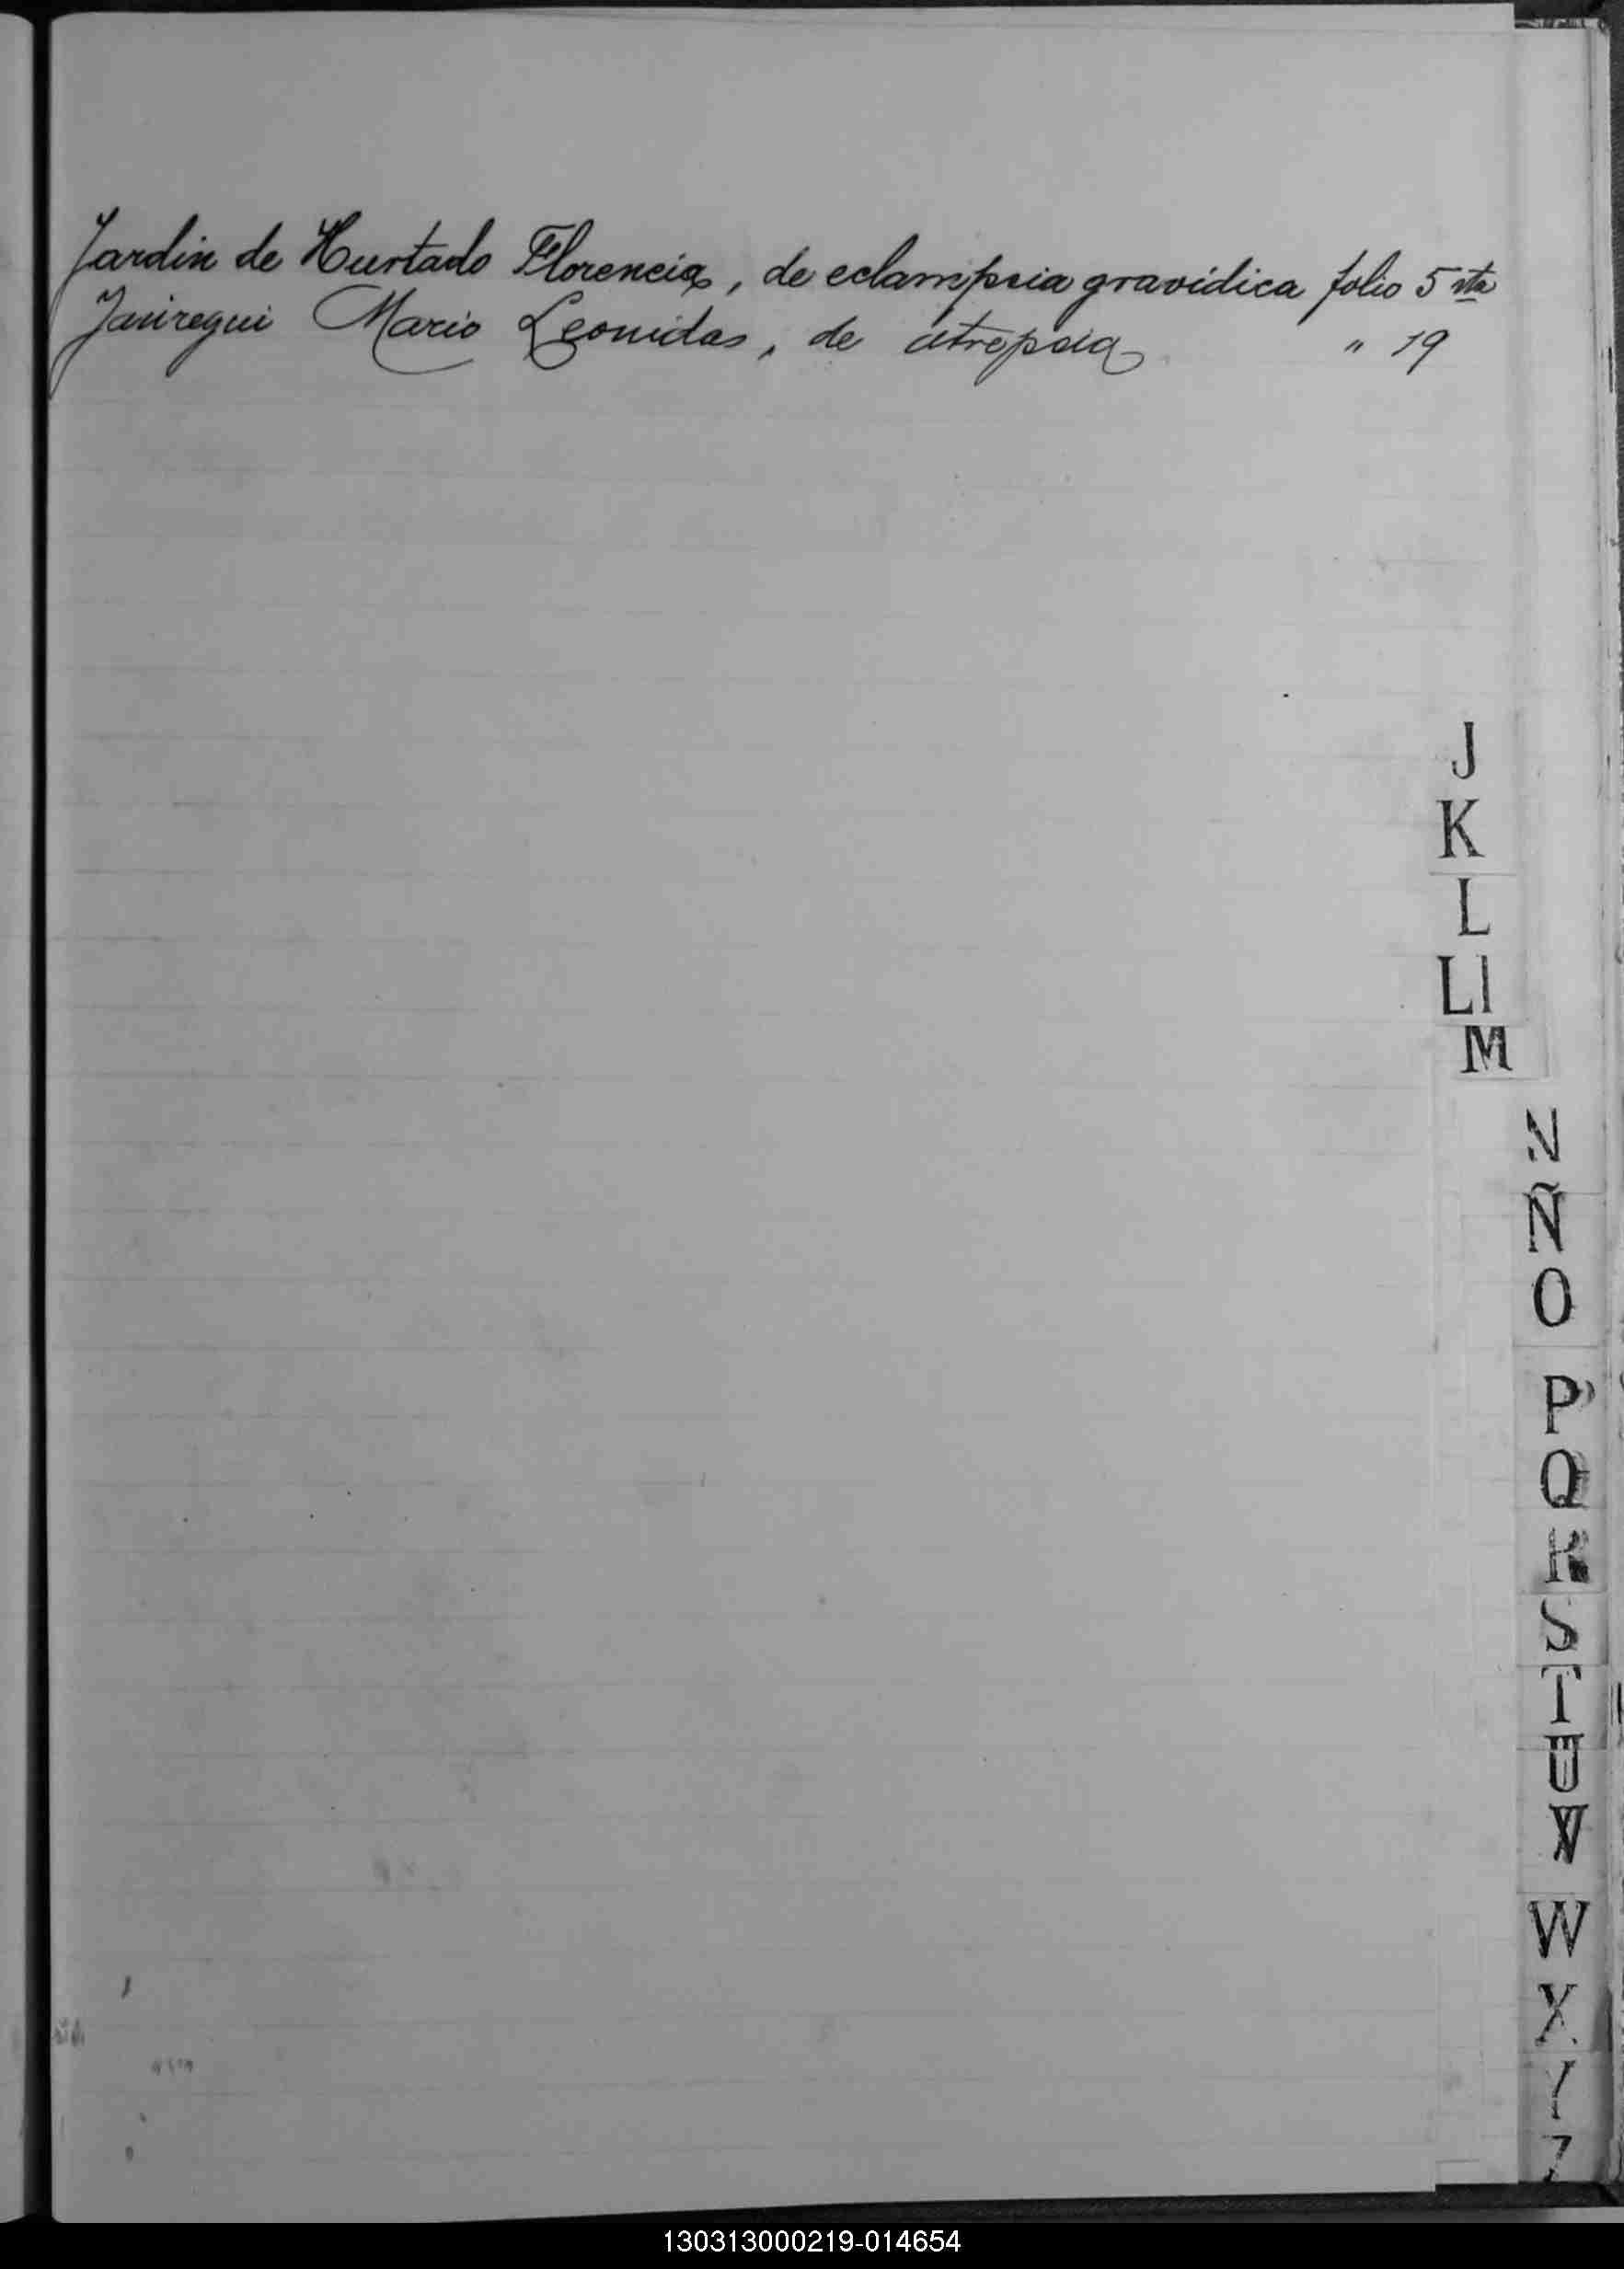 Jardin de Hurtado Florencia, de eclampsia gravídica folio 5 vta
Jauregui Mario Leonidas, de atrepsia " 19
J
K
L
Ll
M
N
Ñ
O
P
Q
R
S
T
U
V
W
X
Y
Z
130313000219-014654